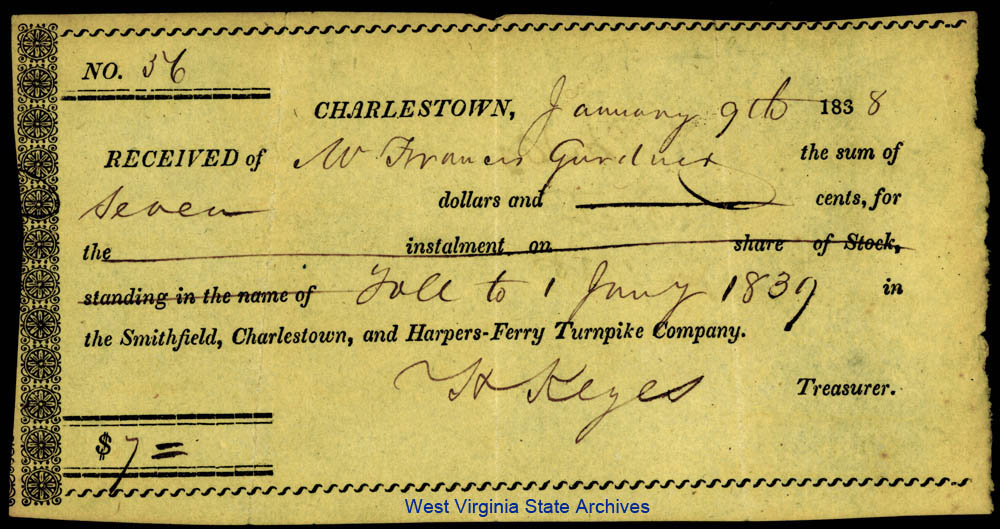 NO. 56
CHARLESTOWN, January 9th 1838
RECEIVED of Mr Francis Gardner the sum of
Seven dollars and cents, for
the instalment on share of Stock,
standing in the name of Toll to 1 Jany 1839 in
the Smithfield, Charlestown, and Harpers-Ferry Turnpike Company.
H Keyes Treasurer.
$ 7 =
West Virginia State Archives